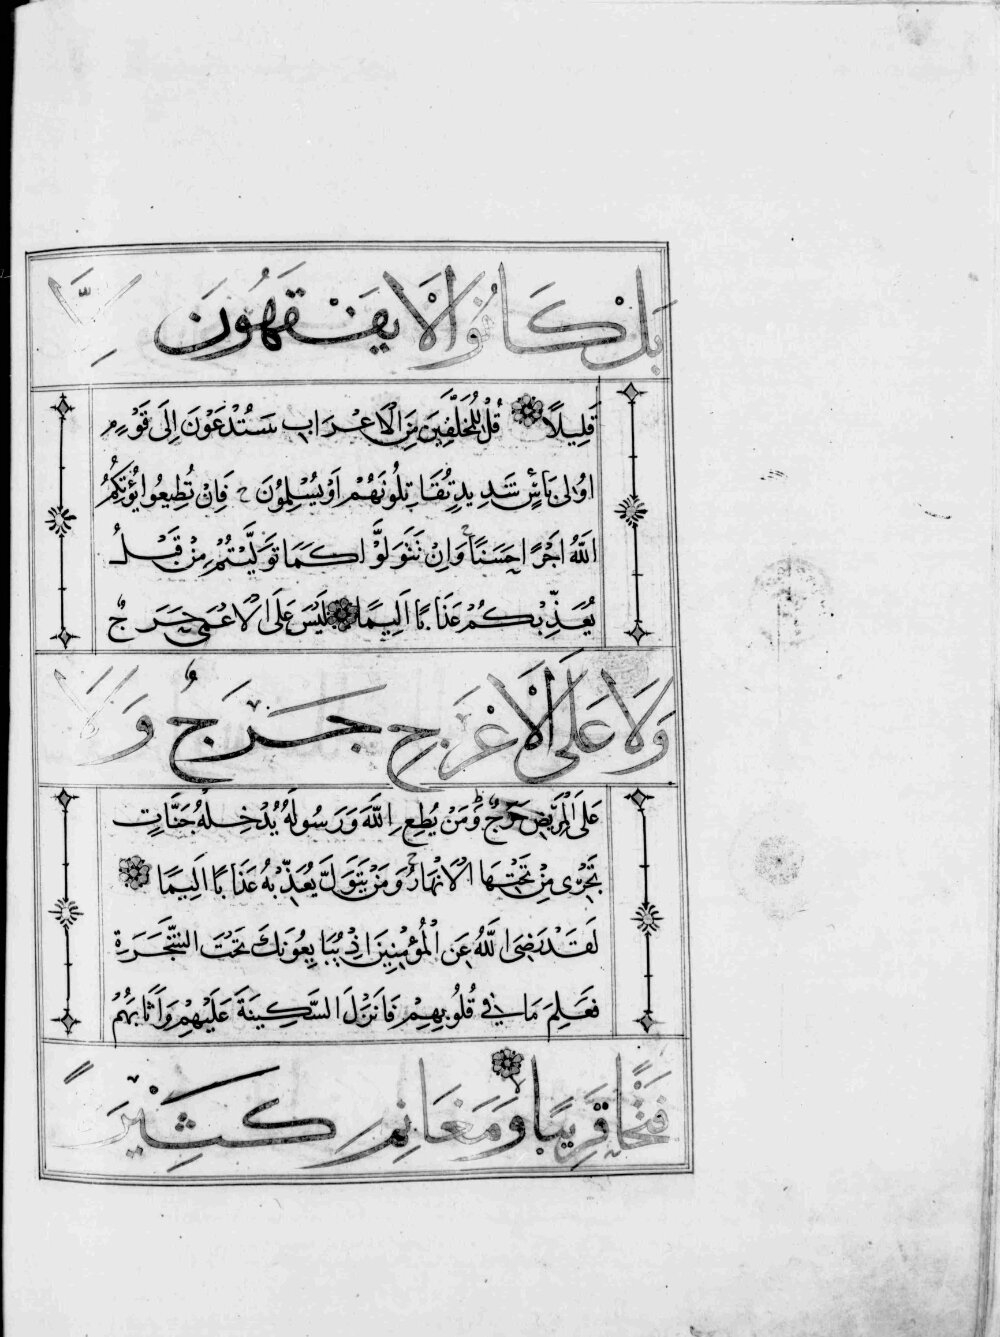 بَلْ كَانُوا لَا يَفْقَهُونَ إِلَّا
قَلِيلًا قُلْ لِلْمُخَلَّفِينَ مِنَ الْأَعْرَابِ سَتُدْعَوْنَ إِلَى قَوْمٍ
اُولِى بَأْسٍ شَدِيدٍ تُقَاتِلُونَهُمْ اَوْ يُسْلِمُونَ ج فَاِنْ تُطِيعُوا يُؤْتِكُمُ
اللَّهُ اَجْرًا حَسَنًا ج وَاِنْ تَتَوَلَّوْا كَمَا تَوَلَّيْتُمْ مِنْ قَبْلُ
يُعَذِّبْكُمْ عَذَابًا اَلِيمًا لَيْسَ عَلَى الْاَعْمَى حَرَجٌ
وَلَا عَلَى الْاَعْرَجِ حَرَجٌ وَلَا
عَلَى الْمَرِيضِ حَرَجٌ ط وَمَنْ يُطِعِ اللَّهَ وَرَسُولَهُ يُدْخِلْهُ جَنَّاتٍ
تَجْرِى مِنْ تَحْتِهَا الْاَنْهَارُ ج وَمَنْ يَتَوَلَّ يُعَذِّبْهُ عَذَابًا اَلِيمًا
لَقَدْ رَضِىَ اللَّهُ عَنِ الْمُؤْمِنِينَ اِذْ يُبَايِعُونَكَ تَحْتَ الشَّجَرَةِ
فَعَلِمَ مَا فِى قُلُوبِهِمْ فَاَنْزَلَ السَّكِينَةَ عَلَيْهِمْ وَاَثَابَهُمْ
فَتْحًا قَرِيبًا لا وَمَغَانِمَ كَثِيرَةً